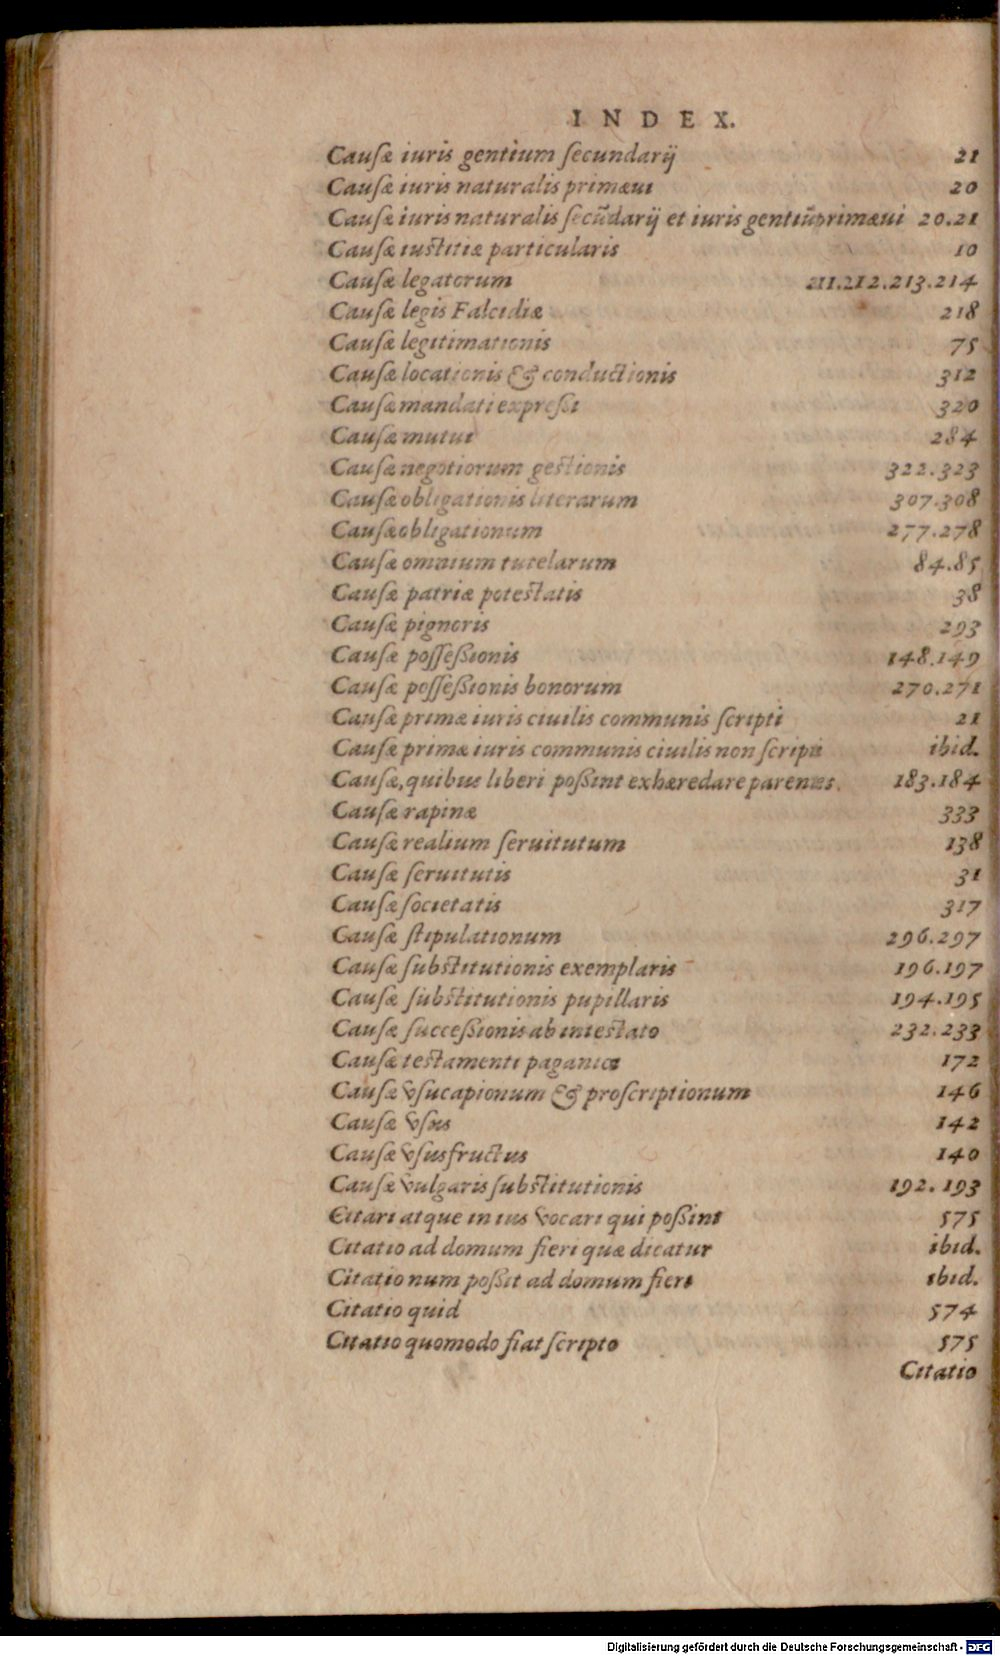 INDEX.
Cauſæ iuris gentium ſecundarij 21
Cauſæ iuris naturalis primæui 20
Cauſæ iuris naturalis ſecũdarij et iuris gentiũ primæui 20.21
Cauſæ iuſtitiæ particularis 10
Cauſæ legatorum 211.212.213.214
Cauſæ legis Falcidiæ 218
Cauſæ legitimationis 75
Cauſæ locationis & conductionis 312
Cauſæ mandati expreßi 320
Cauſæ mutui 284
Cauſæ negotiorum geſtionis 322.323
Cauſæ obligationis literarum 307.308
Cauſæ obligationum 277.278
Cauſæ omnium tutelarum 84.85
Cauſæ patriæ poteſtatis 38
Cauſæ pignoris 293
Cauſæ poſſeßionis 148.149
Cauſæ poſſeßionis bonorum 270.271
Cauſæ primæ iuris ciuilis communis ſcripti 21
Cauſæ primæ iuris communis ciuilis non ſcripti ibid.
Cauſæ, quibus liberi poßint exhæredare parentes. 183.184
Cauſæ rapinæ 333
Cauſæ realium ſeruitutum 138
Cauſæ ſeruitutis 31
Cauſæ ſocietatis 317
Cauſæ ſtipulationum 296.297
Cauſæ ſubſtitutionis exemplaris 196.197
Cauſæ ſubſtitutionis pupillaris 194.195
Cauſæ ſucceßionis ab inteſtato 232.233
Cauſæ teſtamenti paganici 172
Cauſæ vſucapionum & proſcriptionum 146
Cauſæ vſus 142
Cauſæ vſusfructus 140
Cauſæ vulgaris ſubſtitutionis 192.193
Citari atque in ius vocari qui poßint 575
Citatio ad domum fieri quæ dicatur ibid.
Citatio num poßit ad domum fieri ibid.
Citatio quid 574
Citatio quomodo fiat ſcripto 575
Citatio
Digitalisierung gefördert durch die Deutsche Forschungsgemeinschaft - DFG